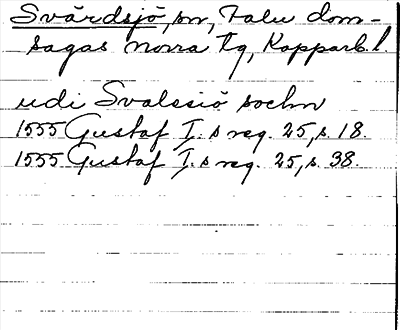 Svärdsjö, sn, Falu dom-
sagas norra tg, Kopparb. l.
udi Svalssiö sochn
1555 Gustaf I:s reg. 25, s. 18.
1555 Gustaf I:s reg. 25, s. 38.